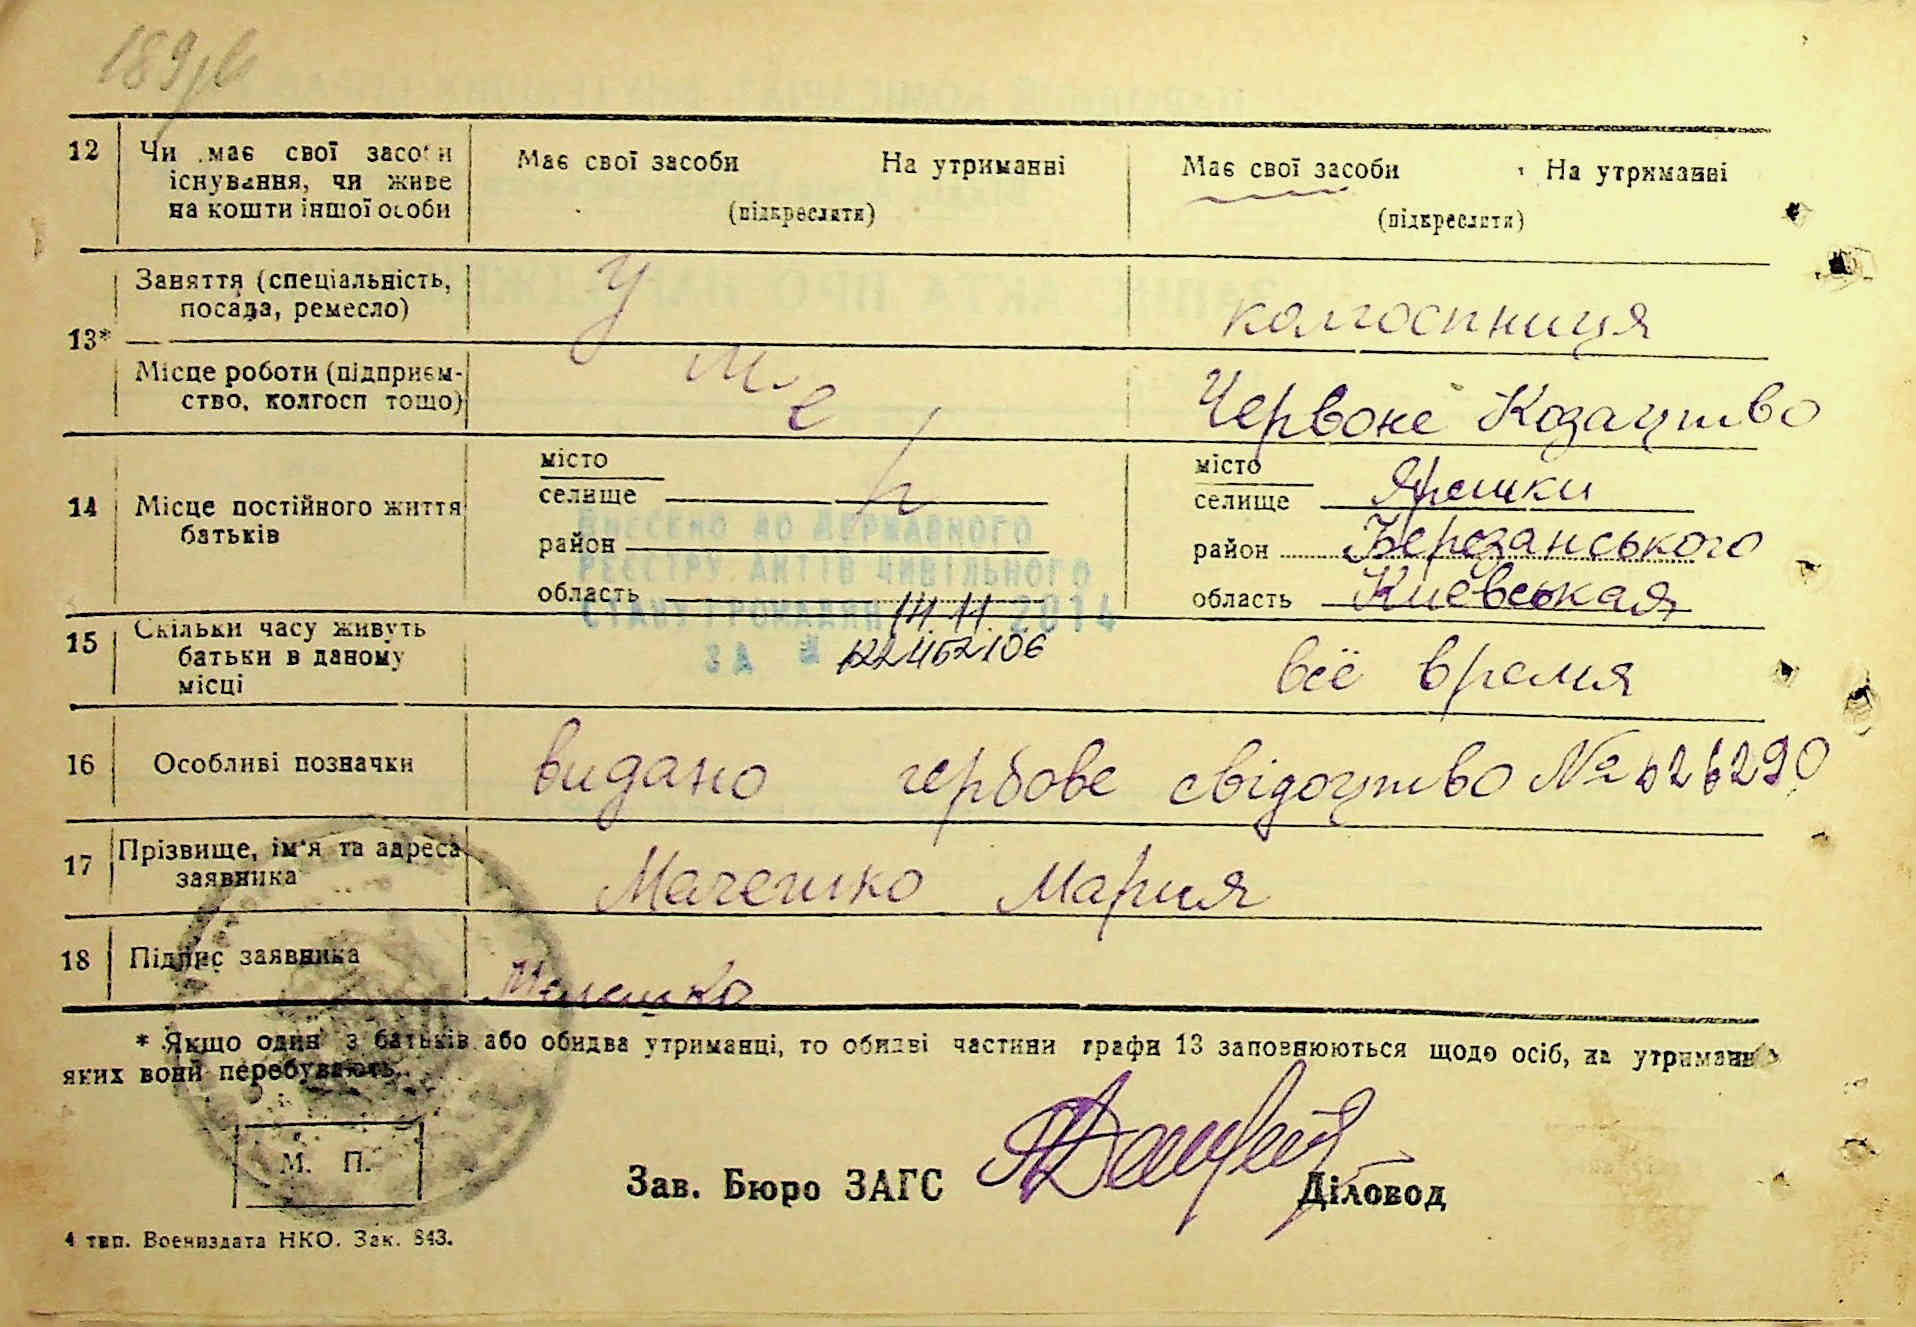 189
12 Чи має свої засоби Має свої засоби На утриманні Має свої засоби На утриманні
існування, чи живе
на кошти іншої особи (підкреслити) (підкреслити)
Заняття (спеціальність,
посада, ремесло) колгоспниця
13*
Місце роботи (підприєм-
ство, колгосп тощо) Червоне Козацтво
Умер
14 Місце постійного життя
батьків
місто
селище
район
область
місто
селище Ярешки
район Березанського
область Киевськая
ВНЕСЕНО ДО ДЕРЖАВНОГО
РЕЄСТРУ АКТІВ ЦИВІЛЬНОГО
СТАНУ ГРОМАДЯН 14.11.2014
ЗА №
15 Скільки часу живуть
батьки в даному
місці всё время
16 Особливі позначки видано гербове свідоцтво № 626290
17 Прізвище, ім'я та адреса
заявника Малешко Мария
18 Підпис заявника Малешко
* Якщо один з батьків або обидва утриманці, то обидві частини графи 13 заповнюються щодо осіб, на утриманні
яких вони перебувають.
М. П.
Зав. Бюро ЗАГС Діловод
4 тип. Воениздата НКО. Зак. 843.